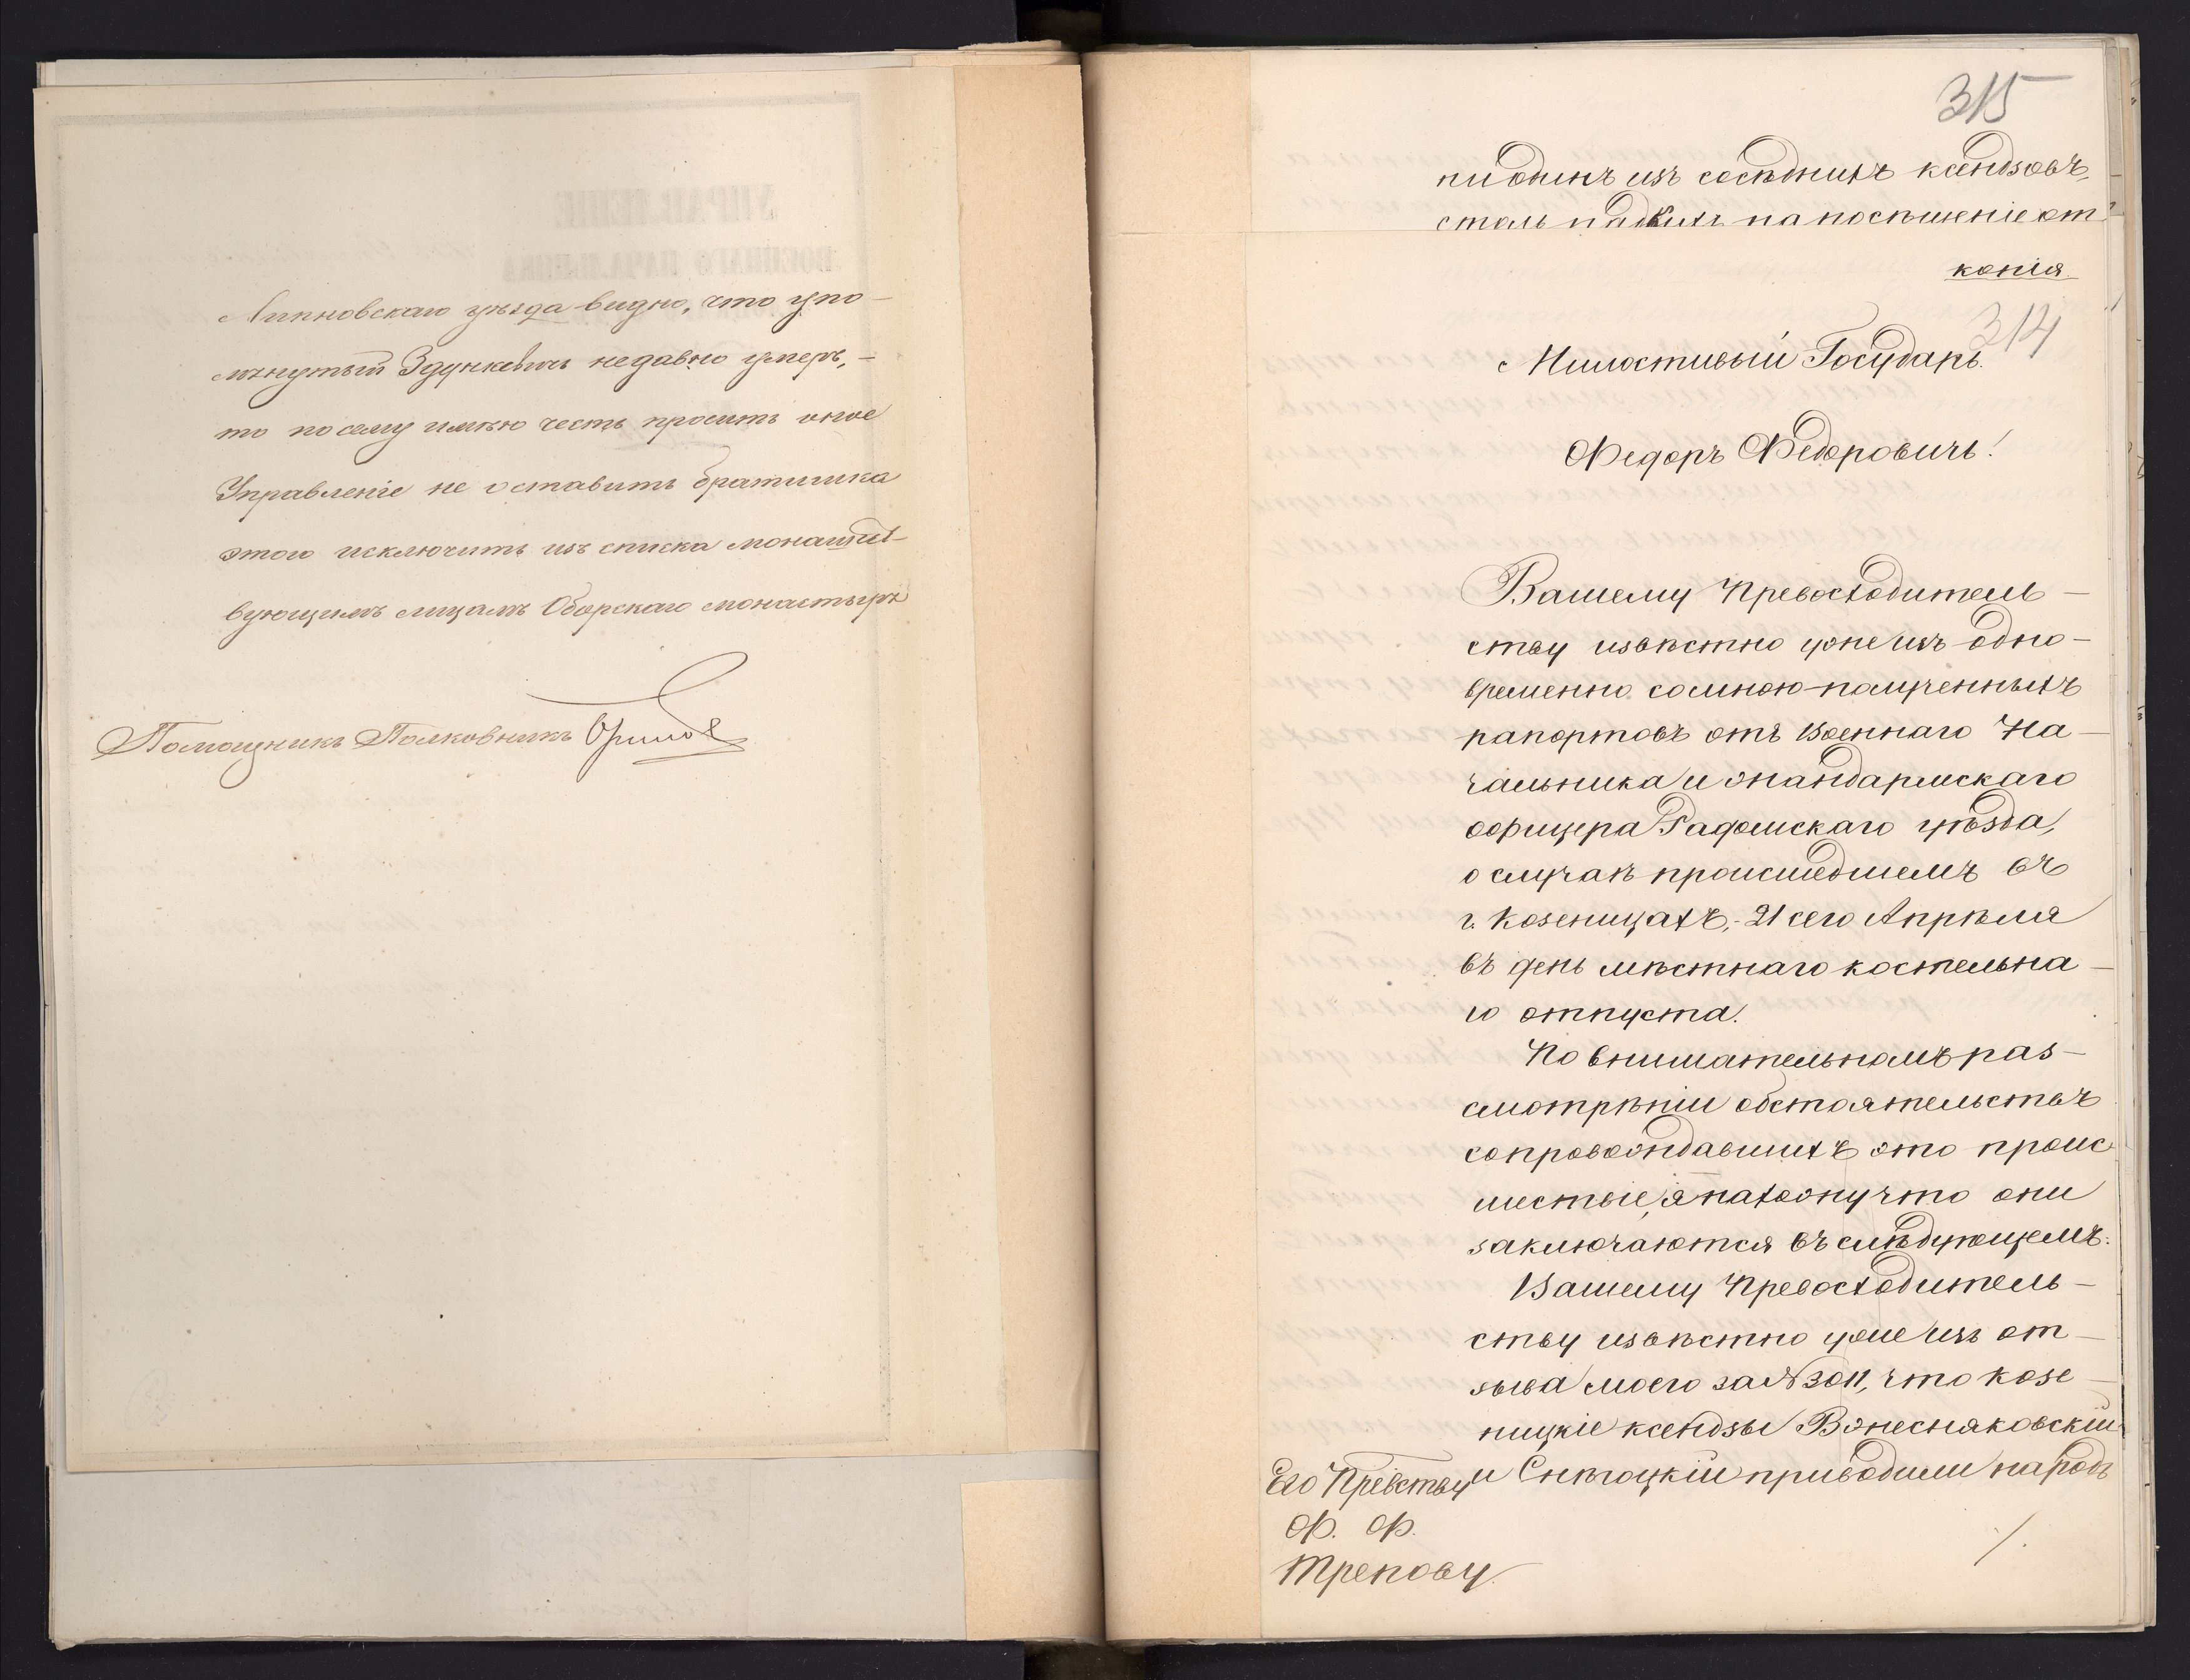 Липновскаго уѣзда видно, что упо-
мянутый Здункевичъ недавно умеръ,-
то по сему имѣю честь просить оное
Управленіе не оставить братишка
этого исключить изъ списка монашест-
вующимъ лицамъ Оборскаго монастыря
Помощникъ Полковникъ
315
ни одинъ изъ сосѣднихъ ксендзовъ,
столь падкихъ на посѣщеніе от
копія
314
Милостивый Государь
Федоръ Федоровичъ!
Вашему Превосходитель-
ству извѣстно уже изъ одно-
временно со мною полученныхъ
рапортовъ отъ Военнаго На-
чальника и жандармскаго
офицера Радомскаго уѣзда,
о случаѣ происшедшемъ въ
г. Козеницахъ,- 21 сего Апрѣля
въ день мѣстнаго костельна-
го отпуста.
По внимательномъ раз-
смотрѣніи обстоятельствъ
сопровождавшихъ это проис
шествіе, я нахожу что они
заключаются въ слѣдующемъ:
Вашему Превосходитель-
ству извѣстно уже изъ от-
зыва моего за № 3011, что козе-
ницкіе ксендзы Вжесняковскій
и Снѣгоцкій приводили народъ
Его Превству
Ф. Ф.
Трепову
./.